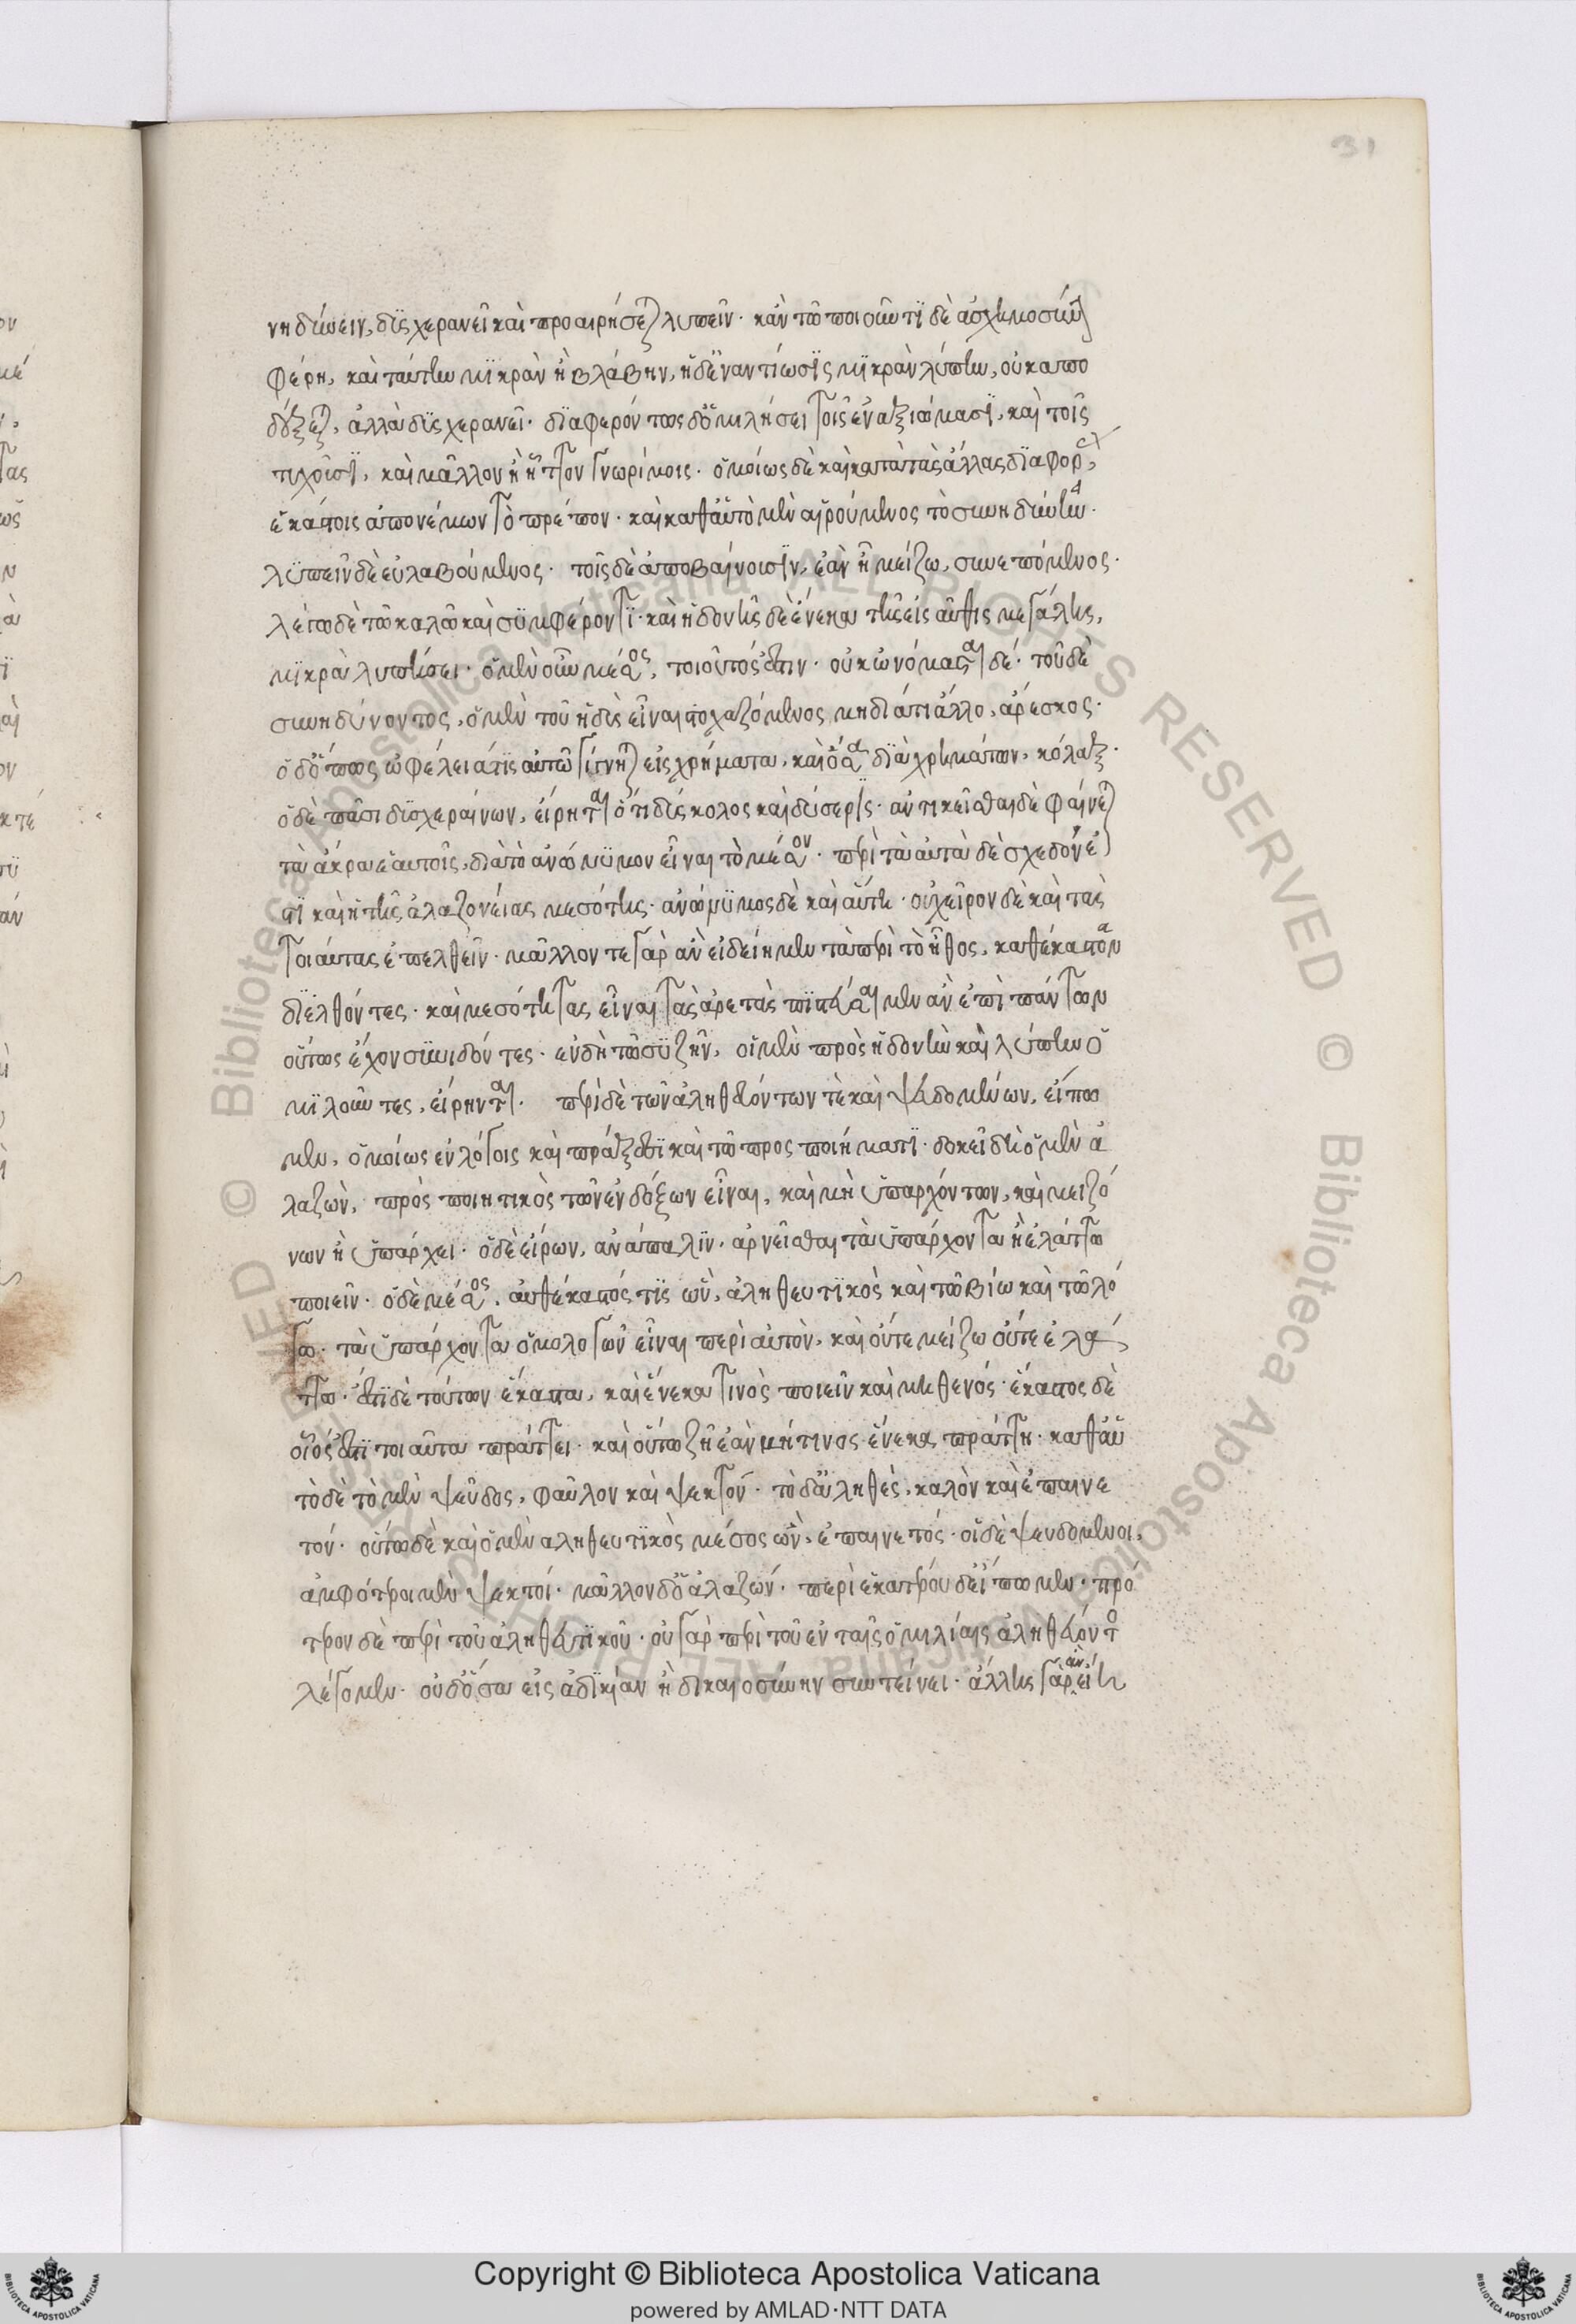 31
νηδύνειν, δυσχερανεῖ καὶ προαιρήσεται λυπεῖν· κἂν τῶ ποιοῦντι δὲ ἀσχημοσύνην
φέρη, καὶ ταύτην μικρὰν ἢ βλάβην, ἡ δ' ἐναντίωσις μικρὰν λύπην, οὐκ ἀπο
δέξεται, ἀλλὰ δυσχερανεῖ· διαφερόντως δ' ὁμιλήσει τοῖς ἐν ἀξιώμασι, καὶ τοῖς
τυχοῦσι, καὶ μᾶλλον ἢ ἧττον γνωρίμοις· ὁμοίως δὲ καὶ κατὰ τὰς ἄλλας διαφορὰς,
ἑκάστοις ἀπονέμων τὸ πρέπον· καὶ καθ' αὑτὸ μὲν αἱρούμενος τὸ συνηδύνειν·
λυπεῖν δὲ εὐλαβούμενος· τοῖς δὲ ἀποβαίνουσιν, ἐὰν ἦ μείζω, συνεπόμενος·
λέγω δὲ τῶ καλῶ καὶ συμφέροντι· καὶ ἡδονῆς δὲ ἕνεκα τῆς εἰς αὖθις μεγάλης,
μικρὰ λυπήσει· ὁ μὲν οὖν μέσος, τοιοῦτός ἐστιν· οὐκ ὠνόμασται δέ· τοῦ δὲ
συνηδύνοντος, ὁ μὲν τοῦ ἡδὺς εἶναι στοχαζόμενος μὴ διά τι ἄλλο, ἄρεσκος·
ὁ δ' ὅπως ὠφέλειά τις αὐτῶ γίγνηται εἰς χρήματα, καὶ ὅσα διὰ χρημάτων, κόλαξ·
ὁ δὲ πᾶσι δυσχεραίνων, εἴρηται ὅτι δύσκολος καὶ δύσερις· ἀντικεῖσθαι δὲ φαίνεται
τὰ ἄκρα ἑαυτοῖς, διὰ τὸ ἀνώνυμον εἶναι τὸ μέσον· περὶ τὰ αὐτὰ δὲ σχεδόν ἐ
στι καὶ ἡ τῆς ἀλαζονείας μεσότης· ἀνώνυμος δὲ καὶ αὕτη· οὐ χεῖρον δὲ καὶ τὰς
τοιαύτας ἐπελθεῖν· μᾶλλον τε γὰρ ἂν εἰδείημεν τὰ περὶ τὸ ἦθος, καθ' ἕκαστον
διελθόντες· καὶ μεσότητας εἶναι τὰς ἀρετὰς πιστεύσαιμεν ἂν ἐπὶ πάντων
οὕτως ἔχον συνιδόντες· ἐν δὴ τῶ συζῆν, οἱ μὲν πρὸς ἡδονὴν καὶ λύπην ὁ
μιλοῦντες, εἴρηνται· περὶ δὲ τῶν ἀληθευόντων τὲ καὶ ψευδομένων, εἴπω
μεν, ὁμοίως ἐν λόγοις καὶ πράξεσι καὶ τῶ προσποιήματι· δοκεῖ δὴ ὁ μὲν ἀ
λαζὼν, προσποιητικὸς τῶν ἐνδόξων εἶναι, καὶ μὴ ὑπαρχόντων, καὶ μειζό
νων ἢ ὑπάρχει· ὁ δὲ εἴρων, ἀνάπαλιν· ἀρνεῖσθαι τὰ ὑπάρχοντα ἢ ἐλάττω
ποιεῖν· ὁ δὲ μέσος, αὐθέκαστός τις ὢν, ἀληθευτικὸς καὶ τῶ βίω καὶ τῶ λό
γω· τὰ ὑπάρχοντα ὁμολογῶν εἶναι περὶ αὐτὸν, καὶ οὔτε μείζω οὔτε ἐλά
ττω· ἔστι δὲ τούτων ἕκαστα, καὶ ἕνεκα τινὸς ποιεῖν καὶ μηθενός· ἕκαστος δὲ
οἷός ἐστι τοιαῦτα πράττει· καὶ οὕτω ζῆ ἐὰν μή τινος ἕνεκα πράττη· καθ' αὑ
τὸ δὲ τὸ μὲν ψεῦδος, φαῦλον καὶ ψεκτόν· τὸ δ' ἀληθὲς, καλὸν καὶ ἐπαινε
τόν· οὕτω δὲ καὶ ὁ μὲν ἀληθευτικὸς μέσος ὢν, ἐπαινετός· οἱ δὲ ψευδόμενοι,
ἀμφότεροι μὲν ψεκτοί· μᾶλλον δ' ὁ ἀλαζών· περὶ ἑκατέρου δ' εἴπωμεν· πρό
τερον δὲ περὶ τοῦ ἀληθευτικοῦ· οὐ γὰρ περὶ τοῦ ἐν ταῖς ὁμιλίαις ἀληθεύοντος
λέγομεν· οὐδ' ὅσα εἰς ἀδικίαν ἢ δικαιοσύνην συντείνει· ἄλλης γὰρ ἂν εἴη
Copyright © Biblioteca Apostolica Vaticana
powered by AMLAD·NTT DATA